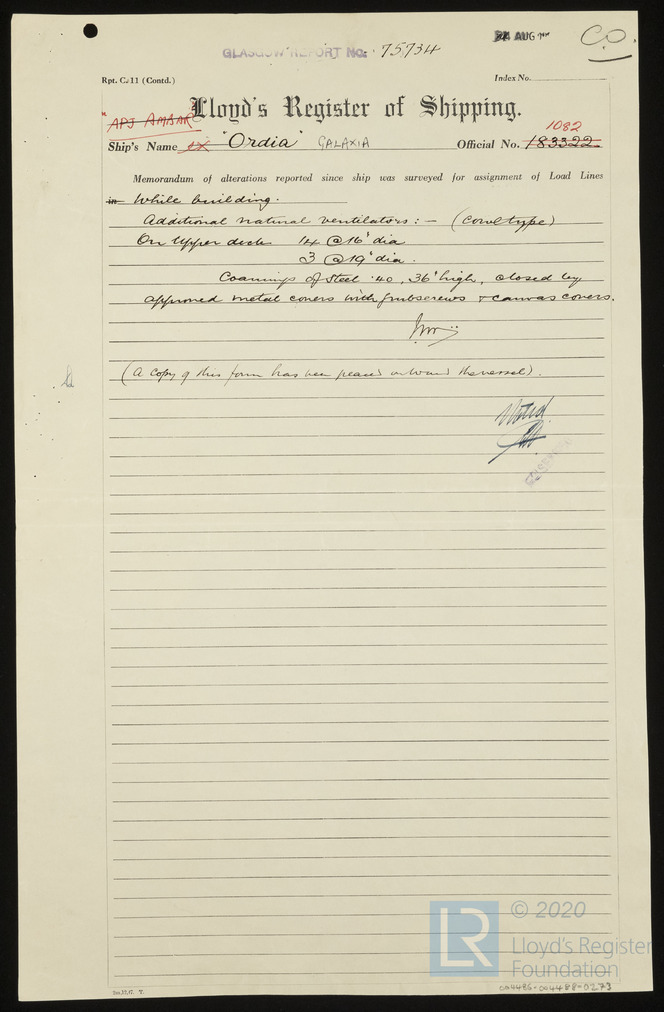 GLASGOW REPORT No. 75734
24 AUG
C.O.
Rpt. C.11 (Contd.)
Index No.
Lloyd's Register of Shipping.
"APJ AMBAR"
1082
Ship's Name ex "Ordia" GALAXIA
Official No. 183322
Memorandum of alterations reported since ship was surveyed for assignment of Load Lines
in While building.
Additional natural ventilators:- (Cowl type)
On upper deck 14 @ 16" dia
3 @ 19" dia.
Coamings of steel .40, 36" high, closed by
approved metal covers with grubscrews & canvas covers.
(A copy of this form has been placed on board the vessel).
Noted
© 2020
LR
Lloyd's Register
Foundation
004486-004488-0273